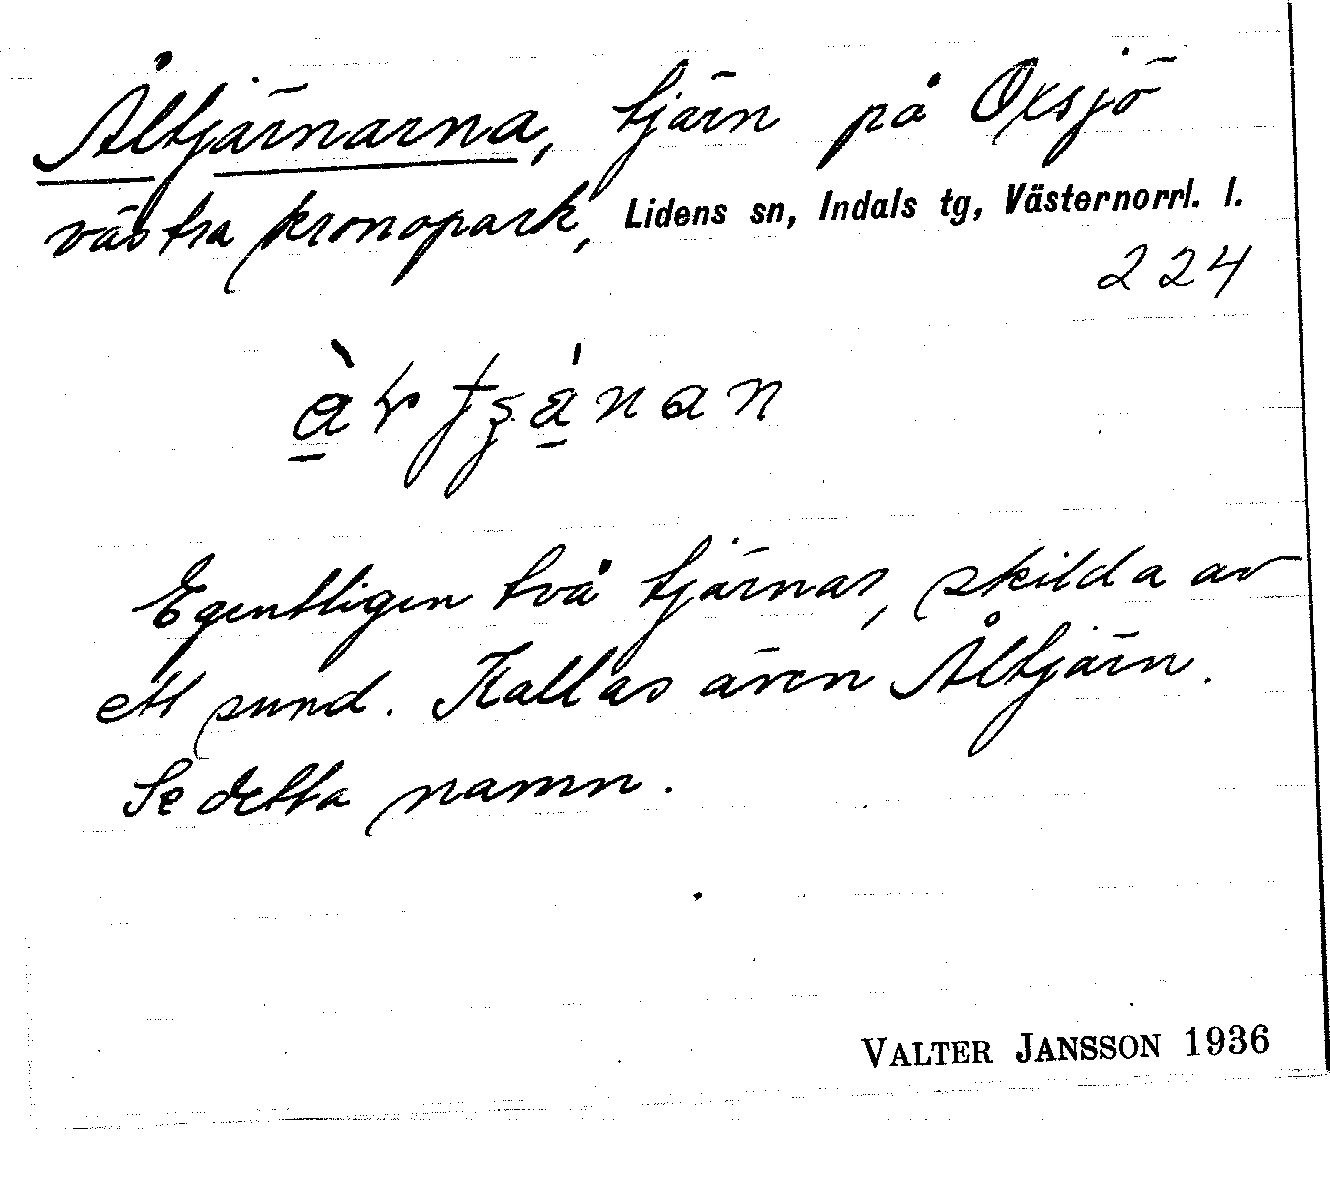 Åltjärnarna, tjärn på Oxsjö
västra kronopark, Lidens sn, Indals tg, Västernorrl. l.
224
Egentligen två tjärnar, skilda av
ett sund. Kallas även Åltjärn.
Se detta namn.
VALTER JANSSON 1936